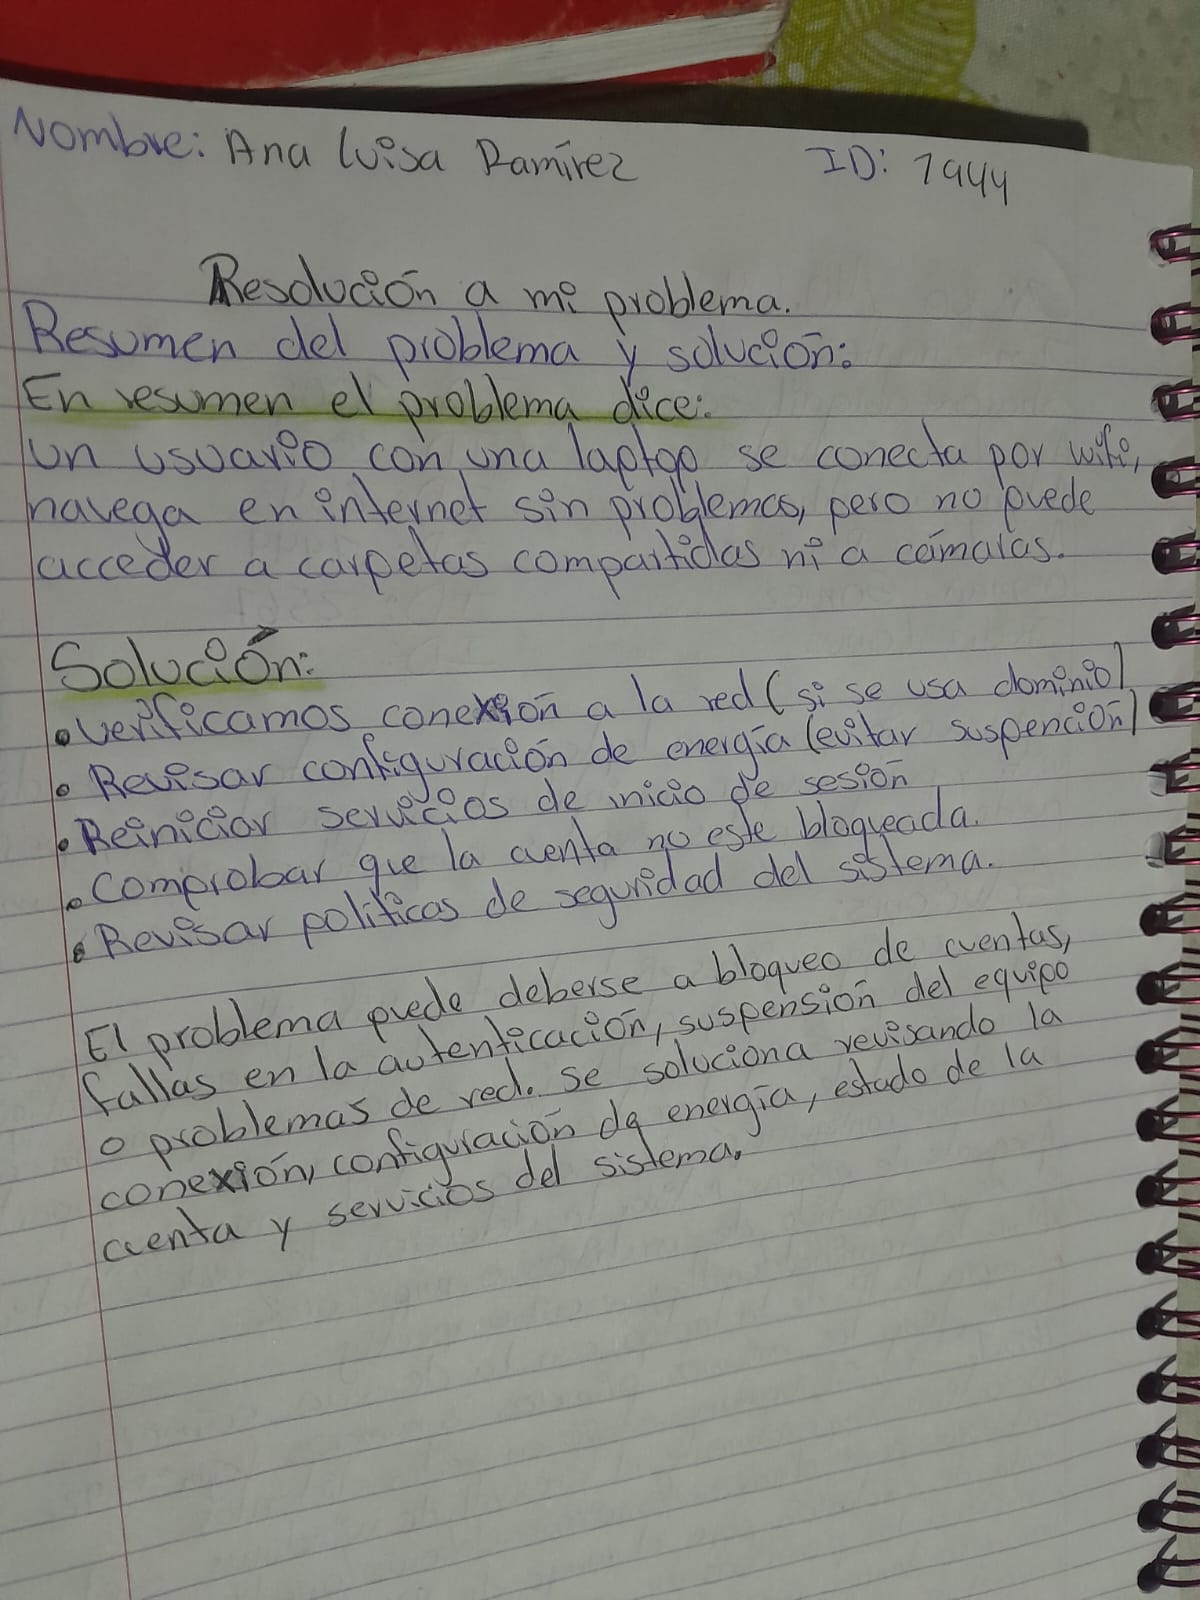 Nombre: Ana Luisa Ramírez ID: 1944
Resolución a mi problema.
Resumen del problema y solución:
En resumen el problema dice:
Un usuario con una laptop se conecta por wifi,
navega en internet sin problemas, pero no puede
acceder a carpetas compartidas ni a cámaras.
Solución:
• Verificamos conexión a la red (si se usa dominio)
• Revisar configuración de energía (evitar suspención)
• Reiniciar servicios de inicio de sesión
• Comprobar que la cuenta no este bloqueada.
• Revisar políticas de seguridad del sistema.
El problema puede deberse a bloqueo de cuentas,
fallas en la autenticación, suspensión del equipo
o problemas de red. Se soluciona revisando la
conexión, configuración de energía, estado de la
cuenta y servicios del sistema.